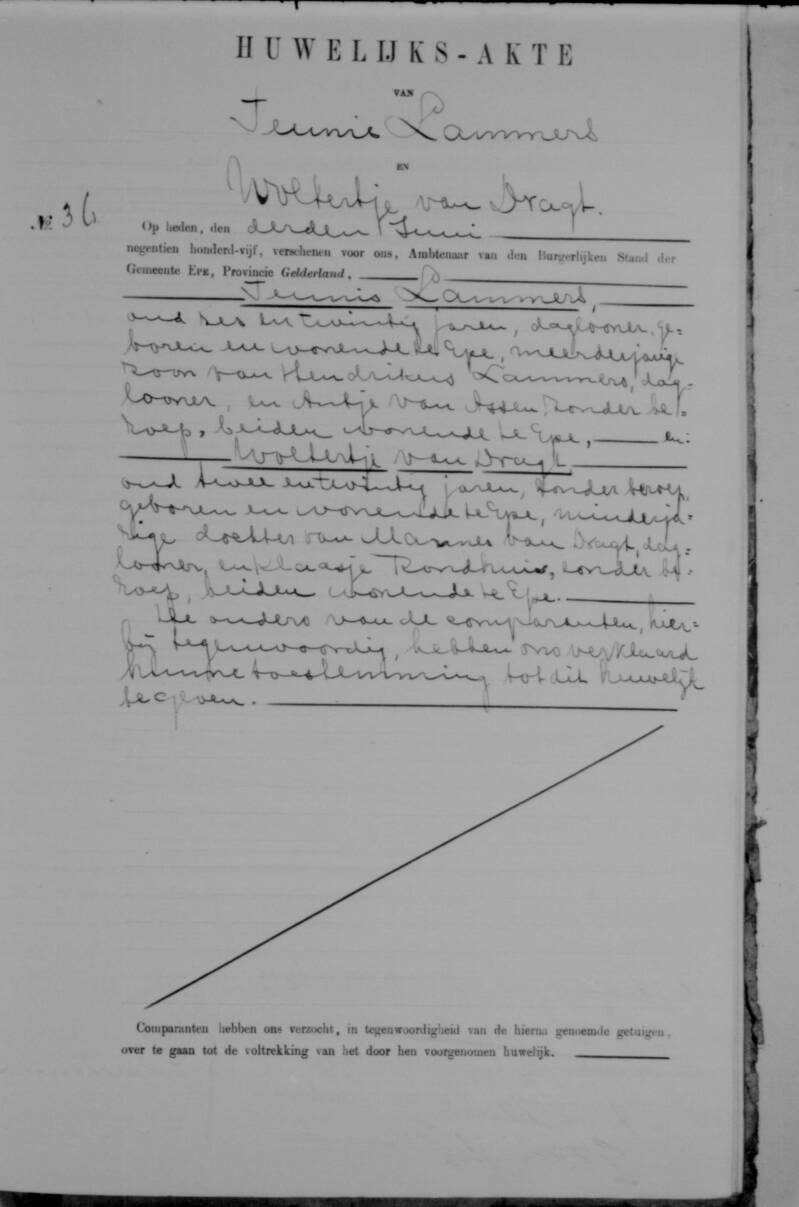 HUWELIJKS-AKTE
VAN
Teunis Lammers
EN
Woltertje van Dragt.
№ 36
Op heden, den derden Juni
negentien honderd-vijf, verschenen voor ons, Ambtenaar van den Burgerlijken Stand der
Gemeente EPE, Provincie Gelderland,
Teunis Lammers,
oud zes en twintig jaren, daglooner, ge=
boren en wonende te Epe, meerderjarige
zoon van Hendrikus Lammers, dag=
looner, en Antje van Assen, zonder be=
roep, beiden wonende te Epe, en:
Woltertje van Dragt
oud twee en twintig jaren, zonder beroep,
geboren en wonende te Epe, minderja=
rige dochter van Mannes van Dragt, dag=
looner, en Klaasje Rondhuis, zonder be=
roep, beiden wonende te Epe.
De ouders van de comparanten, hier=
bij tegenwoordig, hebben ons verklaard
hunne toestemming tot dit huwelijk
te geven.
Comparanten hebben ons verzocht, in tegenwoordigheid van de hierna genoemde getuigen,
over te gaan tot de voltrekking van het door hen voorgenomen huwelijk.